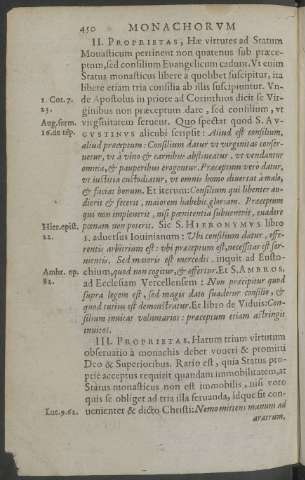 450 MONACHORVM
II. PROPRIETAS, Hæ virtutes ad Statum
Monasticum pertinent non quatenus sub præce-
ptum, sed consilium Euangelicum cadunt. Vt enim
Status monasticus libere à quolibet suscipitur, ita
libere etiam tria consilia ab illis suscipiuntur. Vn-
1. Cor. 7. de Apostolus in priore ad Corinthios dicit se Vir-
25. ginibus non præceptum dare, sed consilium, vt
Aug. serm. virginitatem seruent. Quo spectat quod S. AV-
16. de tēp. GVSTINVS alicubi scripsit: Aliud est consilium,
aliud præceptum: Consilium datur vt virginitas conser-
uetur, vt à vino & carnibus abstineatur, vt vendantur
omnia, & pauperibus erogentur. Præceptum verò datur,
vt iustitia custodiatur, vt omnis homo diuertat à malo,
& faciat bonum. Et iterum: Consilium qui libenter au-
dierit & fecerit, maiorem habebit gloriam. Præceptum
qui non impleuerit, nisi pœnitentia subuenerit, euadere
Hier. epist. pœnam non poterit. Sic S. HIERONYMVS libro
22. 1. aduersus Iouinianum: Vbi consilium datur, offe-
rentis arbitrium est: vbi præceptum est, necessitas est ser-
uientis. Sed maioris est mercedis, inquit ad Eusto-
Ambr. ep. chium, quod non cogitur, & offertur. Et S. AMBROS.
82. ad Ecclesiam Vercellensem: Non præcipitur quod
supra legem est, sed magis dato suadetur consilio, &
quod tutius est demonstratur. Et libro de Viduis: Con-
silium inuitat voluntarios: præceptum etiam astringit
inuitos.
III. PROPRIETAS. Harum trium virtutum
obseruatio à monachis debet voueri & promitti
Deo & Superioribus. Ratio est, quia Status pro-
priè acceptus requirit quandam immobilitatem, at
Status monasticus non est immobilis, nisi voto
quis se obliget ad tria illa seruanda, idque sit con-
Luc. 9. 62. uenienter & dicto Christi: Nemo mittens manum ad
aratrum,